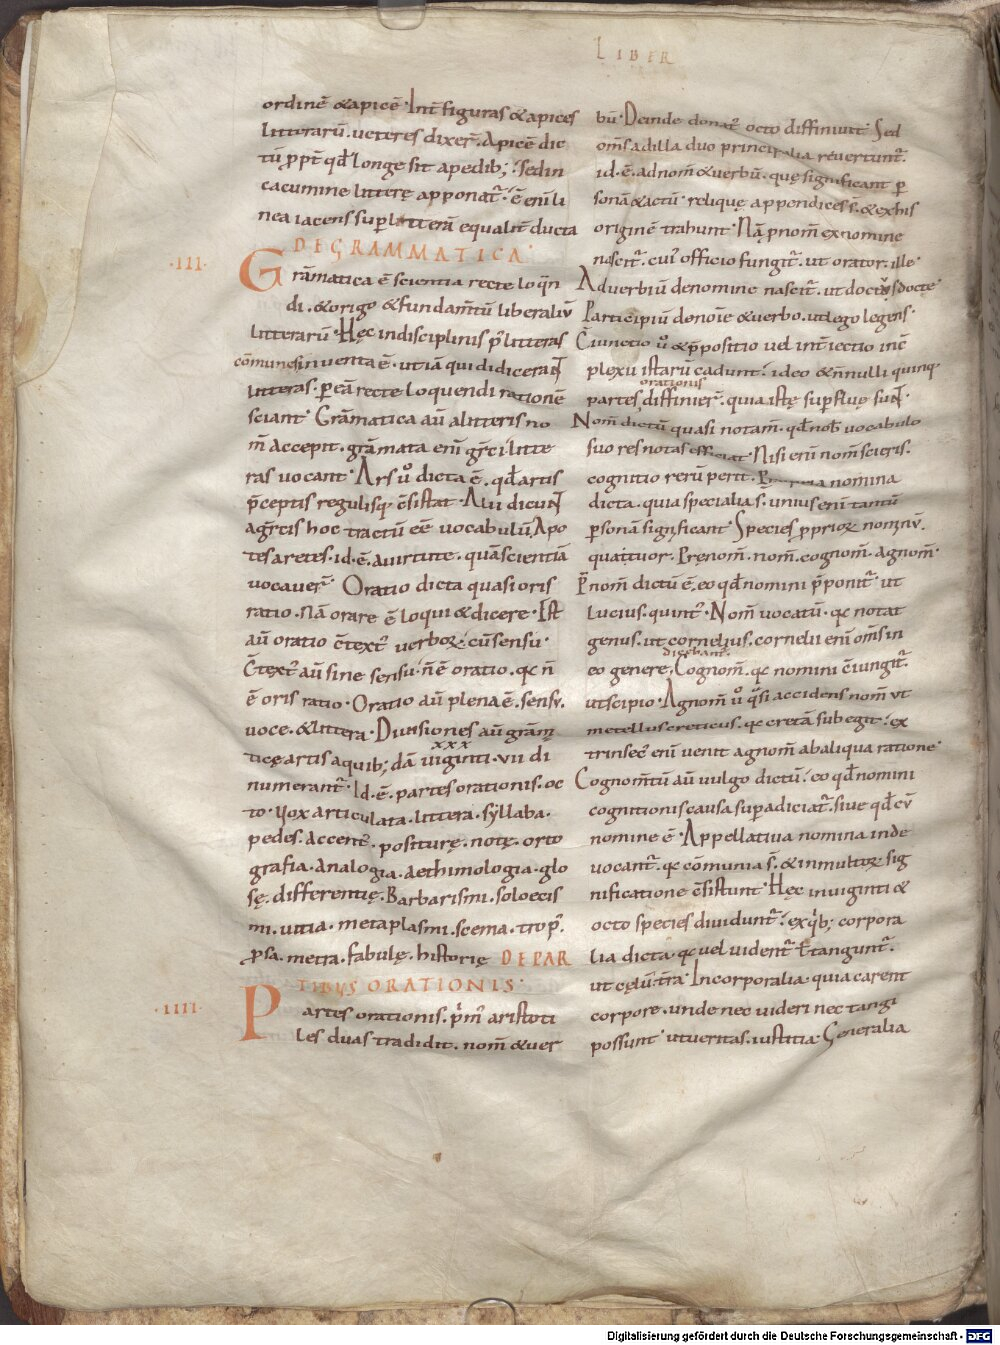 LIBER
ordinē & apicē· Int̄ figuras & apices
litterarū· ueteres dixer̄· Apicē dic
tū ꝓpt̄ qđ longe sit a pedib; · sed in
cacumine litterę apponat᷒· ē eni li
nea iacens sup litterā equalit̄ ducta
DE GRAMMATICA·
·III·
Grāmatica ē scientia recte loqn̄
di· & origo & fundam̄tū liberaliū
litterarū· Hęc in disciplinis p̱ litteras
cōmunes inuenta ē· ut iā qui didicerant
litteras· p eā recte loquendi rationē
sciant· Grāmatica aū a litteris no
m̄ accepit· grāmata eni gr̄ci litte
ras uocant· Ars ů dicta ē· qđ artis
p̄ceptis regulisq; c̄sistat· Alii dicunt
a gr̄cis hoc tractū eē uocabulū, Apo
tes aretes· id· ē· a uirtute· quā scientiā
uocauer̄· Oratio dicta quasi oris
ratio· nā orare ē loqui & dicere· Est
aū oratio c̄text᷒ uerboꝝ· cū sensu·
C̄text᷒ aū sine sensu· n̄ ē oratio· qc n̄
ē oris ratio· Oratio aū plena ē· sensu·
uoce· & littera· Diuisiones aū grām̄
xxx
ticę artis a quib; dā uiginti· vii di
numerant᷒· Id· ē· partes orationis· oc
to· uox articulata· littera· syllaba·
pedes· accent᷒· positurę· notę· orto
grafia· analogia· aethimologia· glo
sę· differentię· Barbarismi· soloecis
mi· uitia· metaplasmi· scema· trop̄·
ꝓsa· metra· fabulę· historię DE PAR
TIBUS ORATIONIS·
·IIII·
Partes orationis· p̱m᷒ aristoti
les duas tradidit· nom̄ & uer
bū· Deinde donat᷒ octo diffiniuit· Sed
om̄s ad illa duo principalia reuertunt᷒·
id· ē· ad nom̄ & uerbū· quę significant p
sonā & actū· reliquę appendices s̄· & ex his
originē trahunt· Nā pnom̄ ex nomine
nascit᷒· cui᷒ officio fungit᷒· ut orator· ille·
Aduerbiū de nomine nascit᷒· ut doctus docte·
Participiū de noīe & uerbo· ut lego legens·
C̄iunctio ů & p̄positio uel int̄iectio in c̄
plexū istarū cadunt· ideo & n̄nulli quinq;
orationis
partes, diffinier̄· quia istę supfluę sunt·
Nom̄ dictū quasi notam̄· qđ nob̄ uocabulo
suo res notas efficiat· Nisi eni nom̄ scieris·
cognitio rerū perit· Propria nomina
dicta· quia specialia s̄· unius eni tantū
psonā significant· Species ꝓprioꝝ nominū·
quattuor· Prenom̄· nom̄· cognom̄· agnom̄·
P̄nom̄ dictū ē· eo qđ nomini p̄ponit᷒· ut
Lucius· quint᷒· Nom̄ uocatū· qc notat
genus· ut cornelius· cornelii eni om̄s in
dicebant᷒·
eo genere, Cognom̄· qc nomini c̄iungit᷒·
ut scipio· Agnom̄ ů q̄si accidens nom̄ ut
metellus creticus· qc cretā subegit· ex
trinsec᷒ eni uenit agnom̄ ab aliqua ratione·
Cognom̄tū aū uulgo dictū· eo qđ nomini
cognitionis causa supadiciat᷒· siue qđ cū
nomine ē· Appellatiua nomina inde
uocant᷒· qc cōmunia s̄· & in multoꝝ sig
nificatione c̄sistunt· Hęc in uiginti &
octo species diuidunt᷒· ex qb; corpora
lia dicta· qc uel uident᷒ ł tangunt᷒·
ut cęlū· t̄ra· Incorporalia· quia carent
corpore· unde nec uideri nec tangi
possunt· ut ueritas· iustitia· Generalia
Digitalisierung gefördert durch die Deutsche Forschungsgemeinschaft - DFG